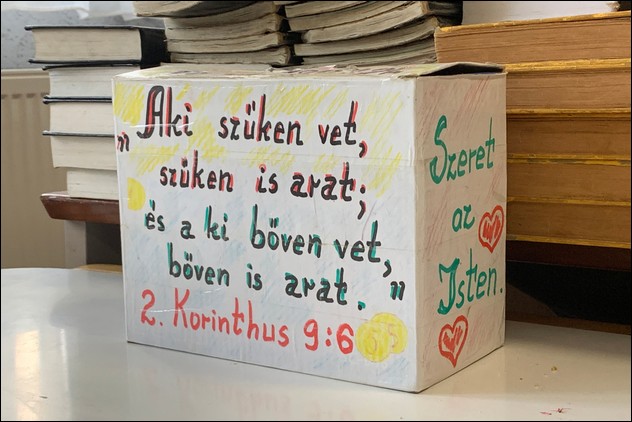 „Aki szűken vet,
szűken is arat;
és a ki bőven vet,
bőven is arat.”
2. Korinthus 9:6
Szeret
az
Isten.